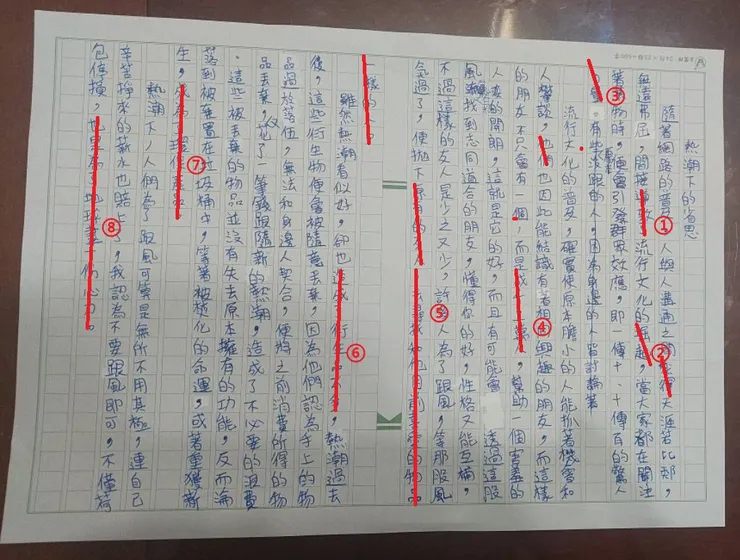 熱潮下的省思
隨著網路的普及，人與人溝通之間
無遠弗屆，間接導致了流行文化的崛起，當大家都在關注
著 物時，便會引發群眾效應，即一傳十、十傳百的驚人
有些沒跟的人，因為身邊的人皆討論著
流行文化的普及，確實使原本膽小的人能抓著機會和
人攀談，他們也因此能結識有著相同興趣的朋友，而這樣
的朋友不只會有一個，而是成 ，幫助一個害羞的
人變的開朗，這就是它的好，而且有可能會 透過這股
風潮找到志同道合的朋友，懂得你的好，性格又能互補，
不過這樣的友人是少之又少，許 人為了跟風，等那股風
氣過了，便拋下原有的友人
一樣的人。
雖然熱潮看似好，卻也造成 衍生 ，熱潮過去
後，這些衍生物便會被隨意丟棄，因為他們認為手上的物
品過於落伍，無法和身邊人契合，便將之前消費所得的物
品丟棄，又花了一筆錢跟隨新的熱潮，造成了不必要的浪費
。這些被丟棄的物品並沒有失去原本擁有的功能，反而淪
落到被棄置在垃圾桶中，等著被焚化的命運，或著重獲新
生，成為了環保產品
熱潮下，人們為了跟風可算是無所不用其極，連自己
辛苦掙來的薪水也賠上了，我認為不要跟風即可，不僅荷
包值損，也是為了地球盡一份心力。
①
②
③
④
⑤
⑥
⑦
⑧